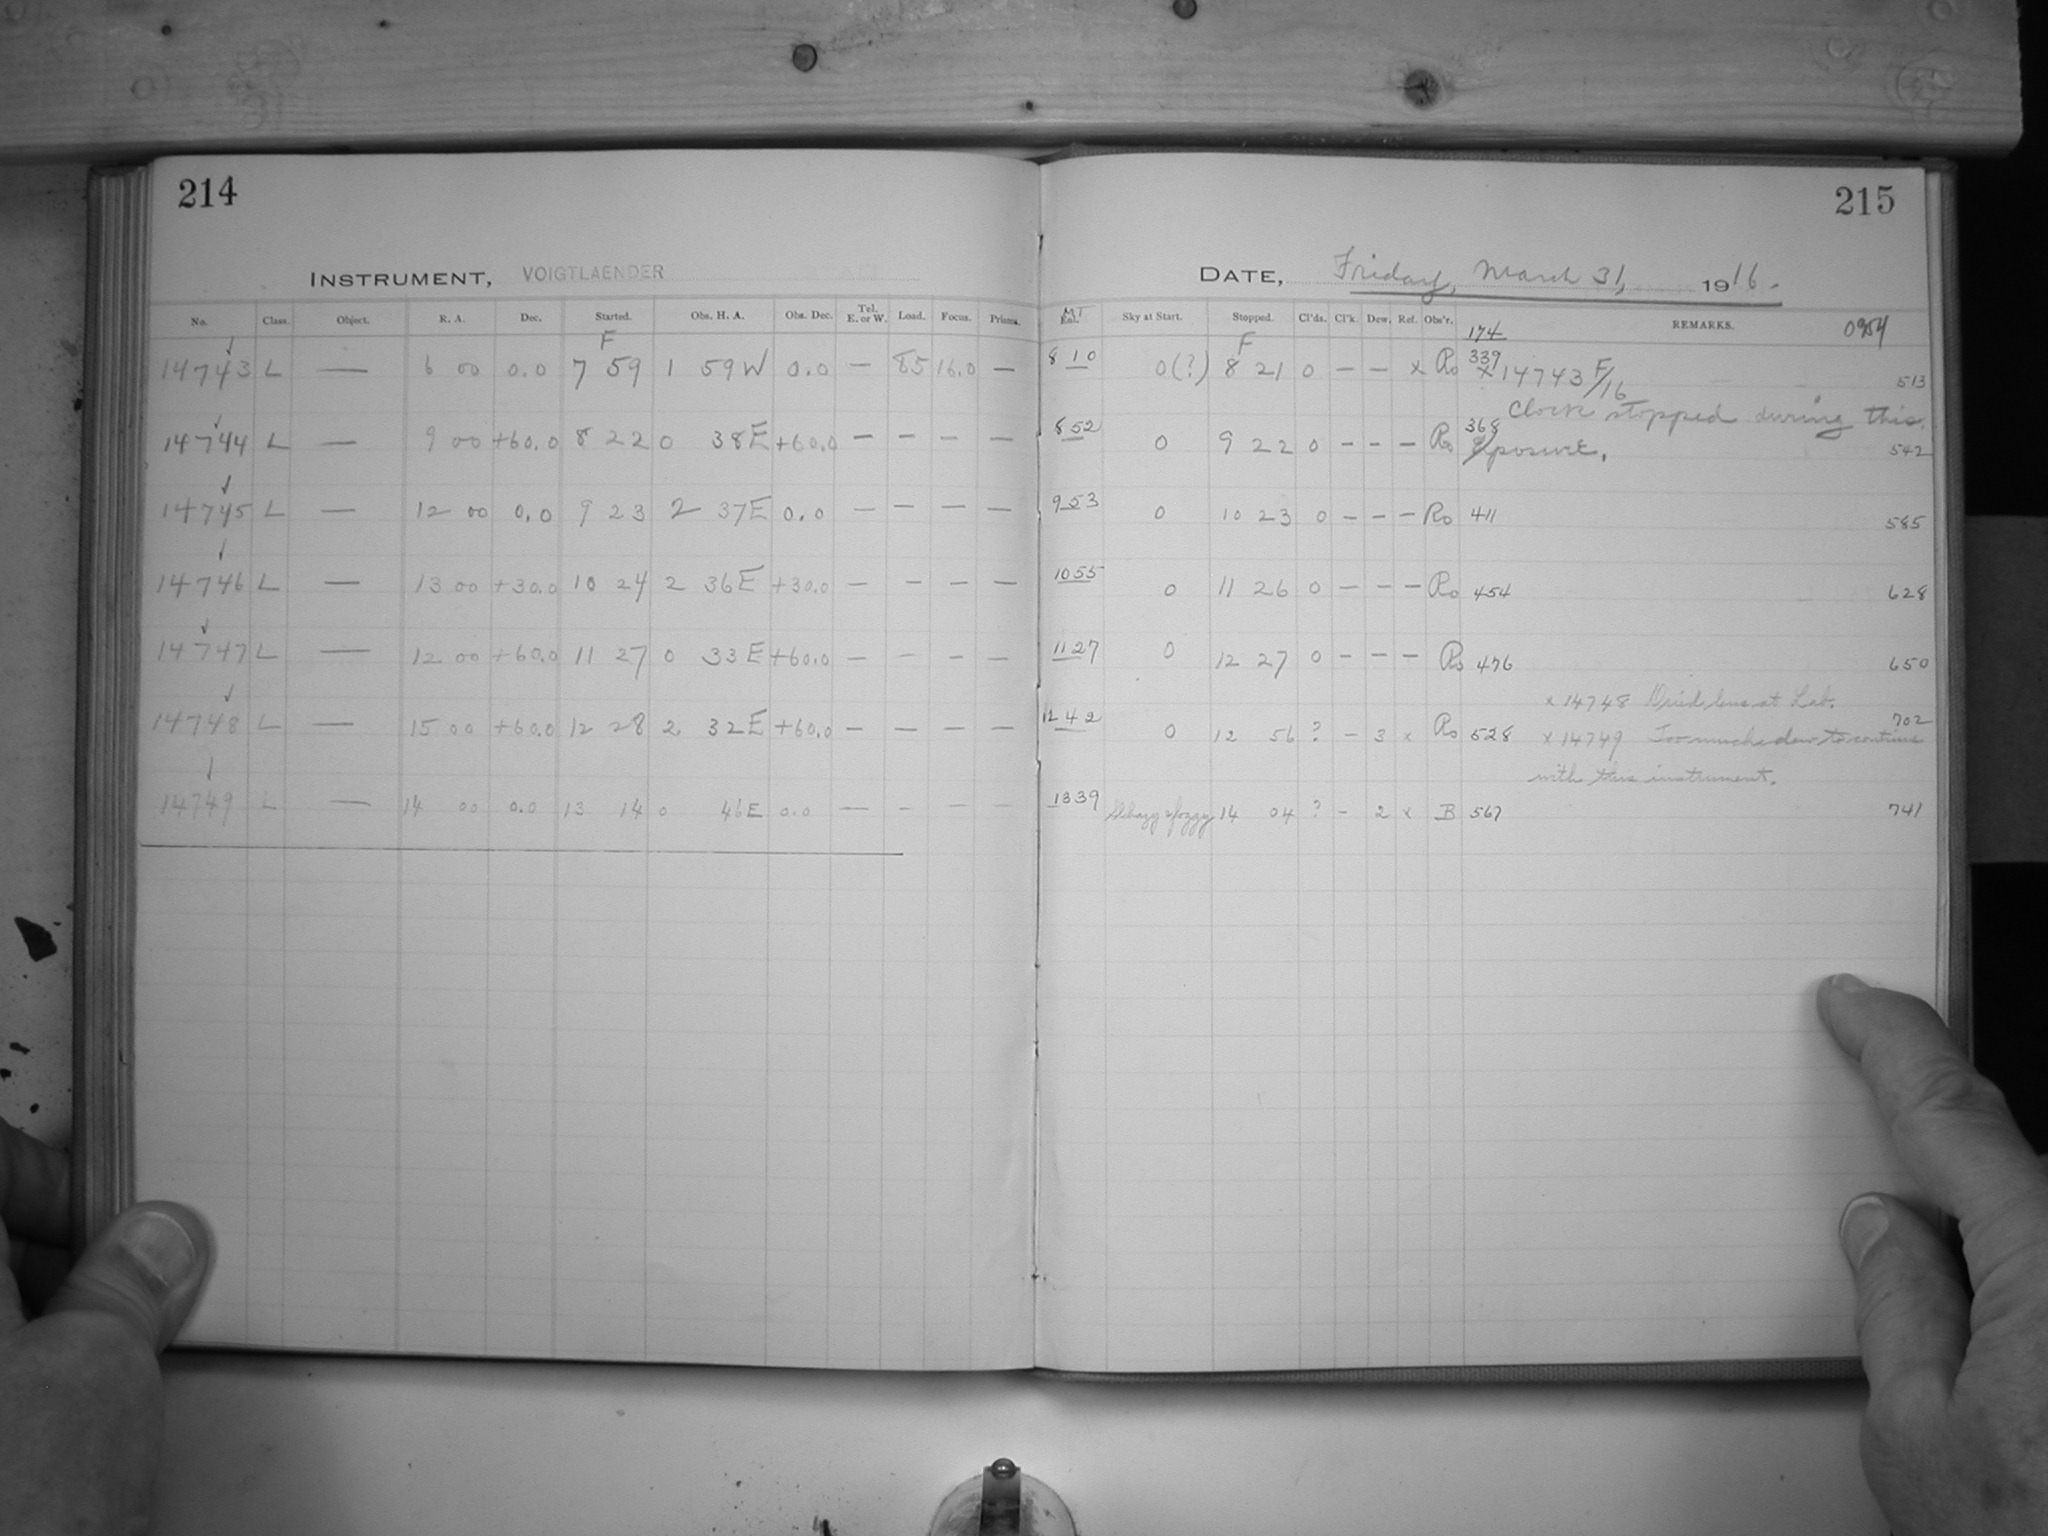 214
215
INSTRUMENT, VOIGTLAENDER
DATE, Friday, March 31, 1916.
No. Class. Object. R. A. Dec. Started. Obs. H. A. Obs. Dec. Tel. E. or W. Load. Focus. Prisms. MT Sky at Start. Stopped. Cl'ds. Cl'k Dew. Ref. Obs'r. 174 REMARKS.
F F
14743 L — 6 00 0.0 7 59 1 59 W 0.0 — 85 16.0 — 8 10 0(?) 8 21 0 — — x Ro 339 x 14743 F/16 513
Clock stopped during this
14744 L — 9 00 +60.0 8 22 0 38 E +60.0 — — — — 8 52 0 9 22 0 — — — Ro 368 exposure. 542
14745 L — 12 00 0.0 9 23 2 37 E 0.0 — — — — 9 53 0 10 23 0 — — — Ro 411 585
14746 L — 13 00 +30.0 10 24 2 36 E +30.0 — — — — 10 55 0 11 26 0 — — — Ro 454 628
14747 L — 12 00 +60.0 11 27 0 33 E +60.0 — — — — 11 27 0 12 27 0 — — — Ro 476 650
x 14748 Dried lens at Lab.
14748 L — 15 00 +60.0 12 28 2 32 E +60.0 — — — — 12 42 0 12 56 ? — 3 x Ro 528 x 14749 Too much dew to continue 702
with this instrument.
14749 L — 14 00 0.0 13 14 0 46 E 0.0 — — — — 13 39 foggy 14 04 ? — 2 x B 567 741